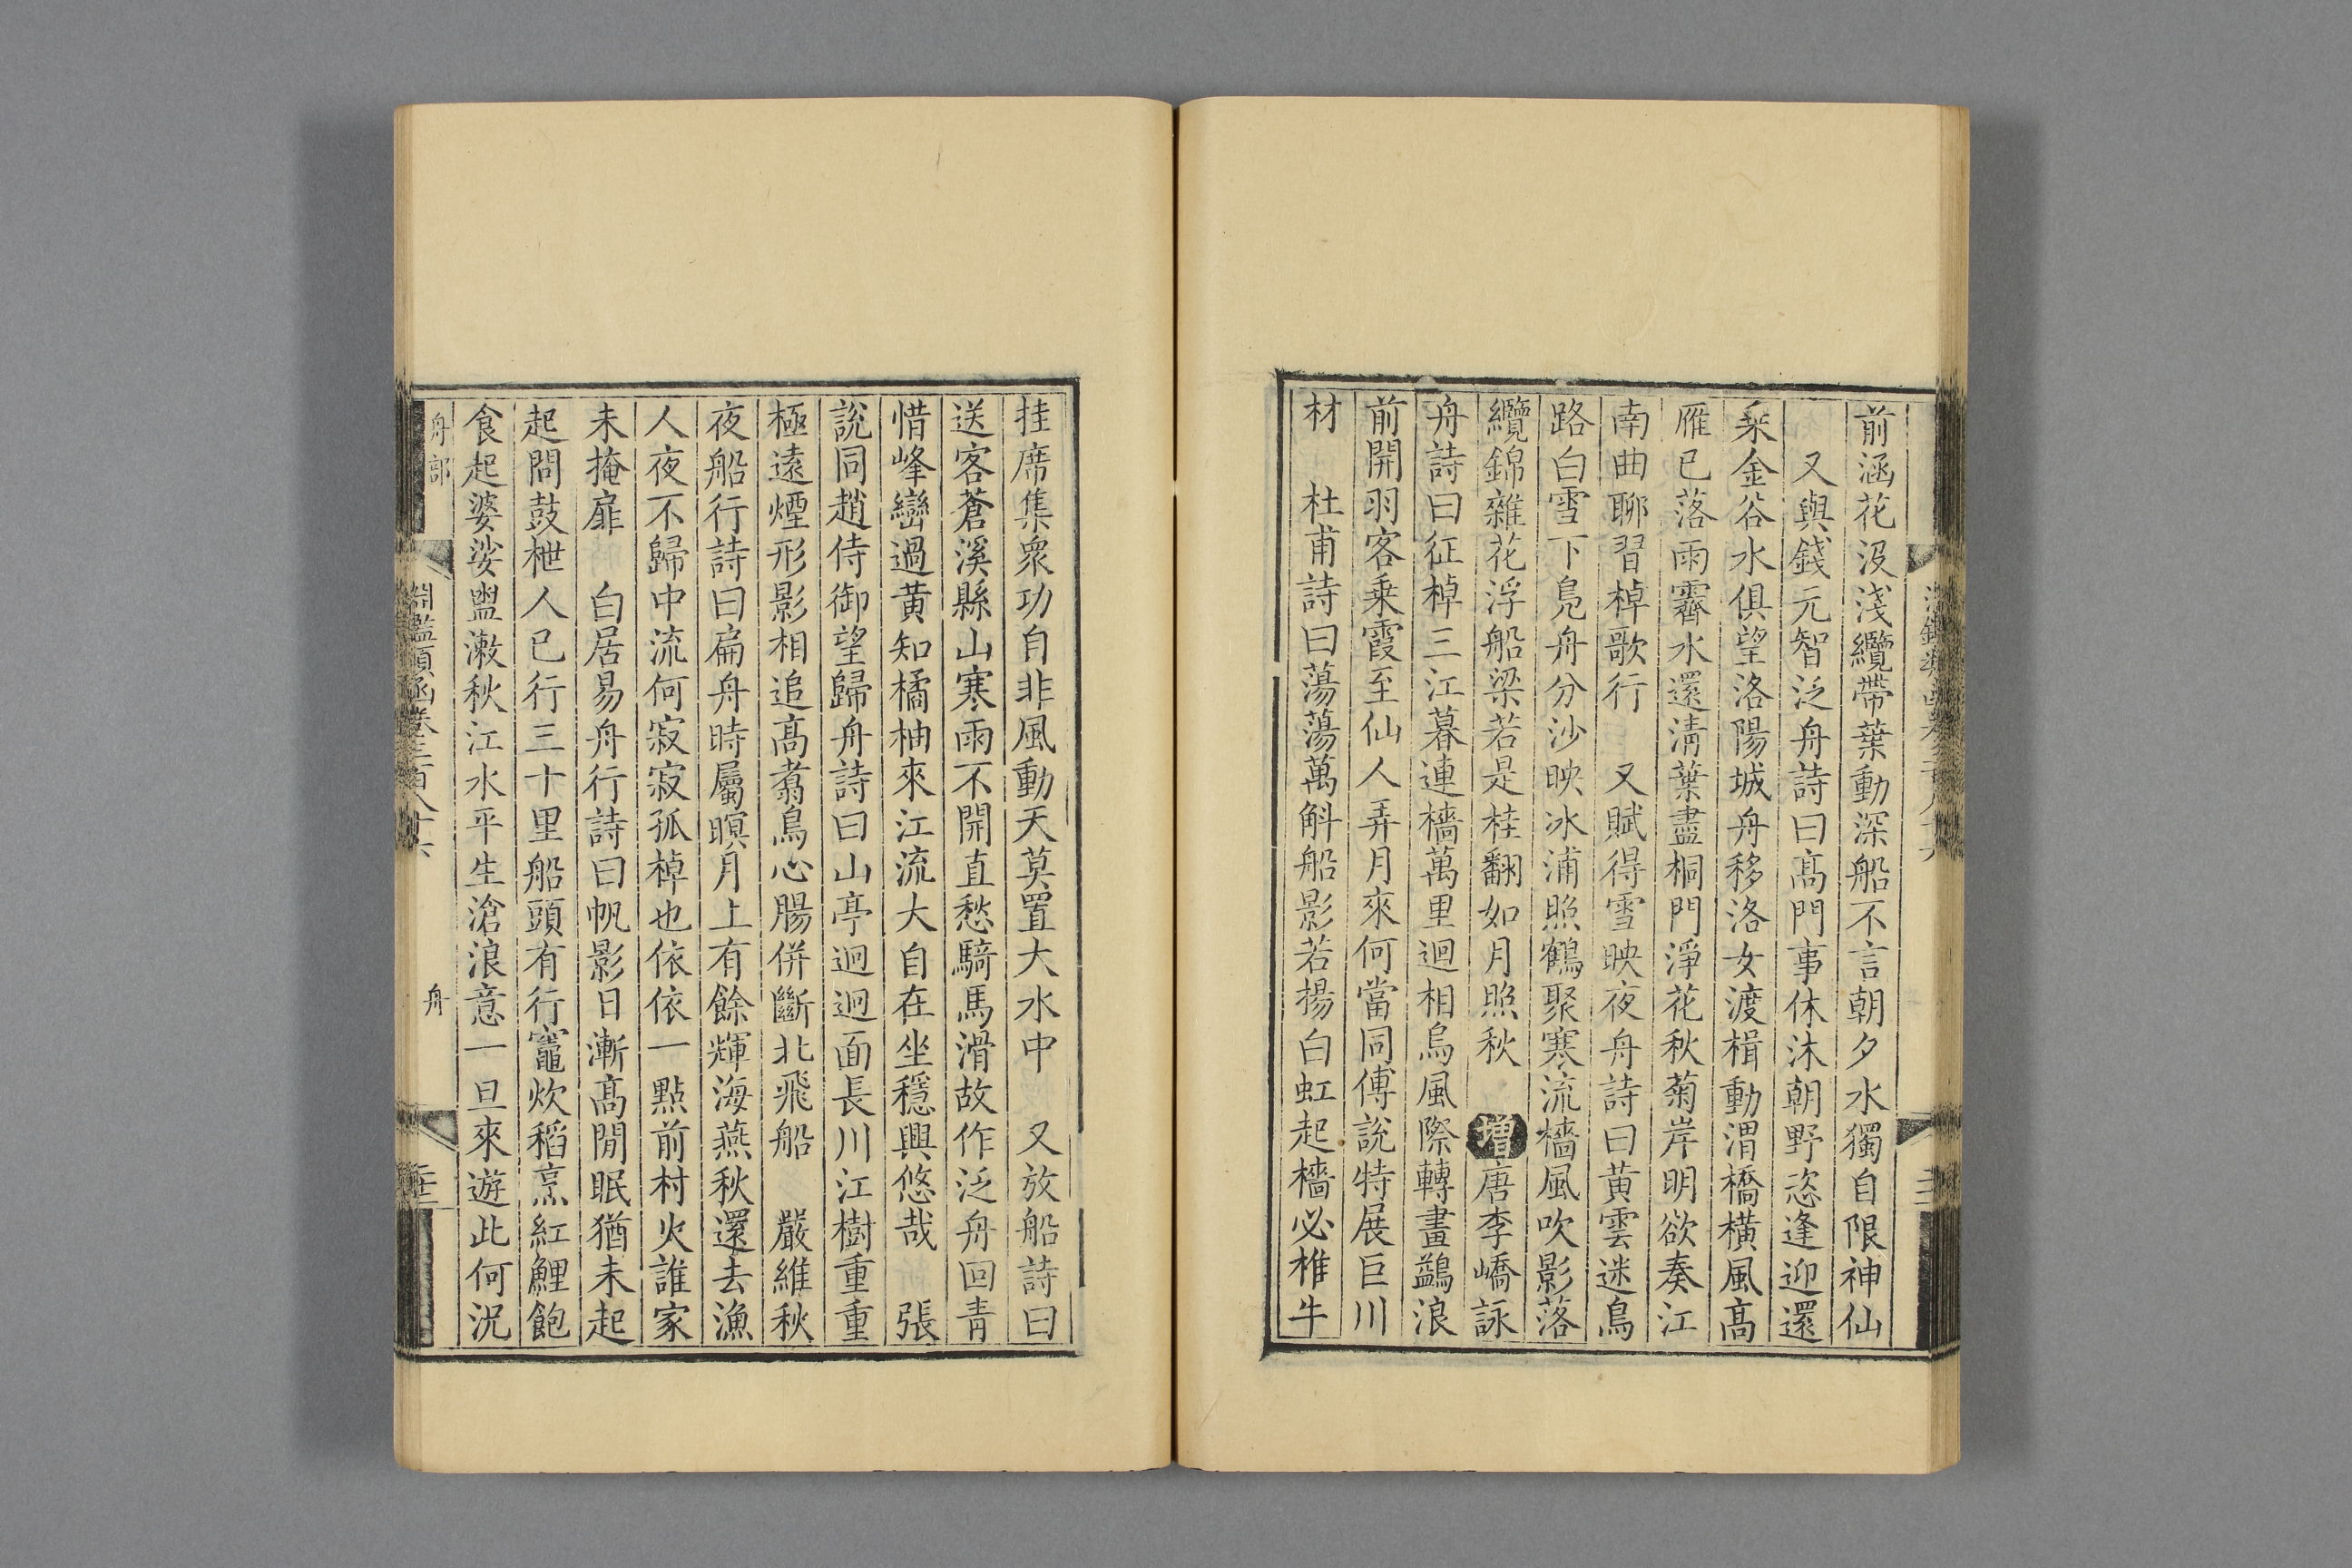 前涵花没淺纜帶葉動深船不言朝夕水獨自限神仙
又與錢元智泛舟詩曰髙門事休沐朝野恣逢迎還
乗金谷水俱望洛陽城舟移洛女渡楫動渭橋横風髙
雁已落雨霽水還淸葉盡桐門淨花秋菊岸明欲奏江
南曲聊習棹歌行　又賦得雪映夜舟詩曰黄雲迷鳥
路白雪下鳬舟分沙映冰浦照鶴聚寒流檣風吹影落
纜錦雜花浮船梁若是桂翻如月照秋　增唐李嶠詠
舟詩曰征棹三江暮連檣萬里迴相烏風際轉畫鷁浪
前開羽客乗霞至仙人弄月來何當同傅說特展巨川
材　杜甫詩曰蕩蕩萬斛船影若揚白虹起檣必椎牛
挂席集衆功自非風動天莫置大水中　又放船詩曰
送客蒼溪縣山寒雨不開直愁騎馬滑故作泛舟回青
惜峰巒過黄知橘柚來江流大自在坐穩興悠哉　張
說同趙侍御望歸舟詩曰山亭迥迥面長川江樹重重
極遠煙形影相追髙翥鳥心腸併斷北飛船　嚴維秋
夜船行詩曰扁舟時屬暝月上有餘輝海燕秋還去漁
人夜不歸中流何寂寂孤棹也依依一點前村火誰家
未掩扉　白居易舟行詩曰帆影日漸髙閒眠猶未起
起問鼓枻人已行三十里船頭有行竈炊稻烹紅鯉飽
食起婆娑盥漱秋江水平生滄浪意一旦來遊此何況
舟部
淵鑑類函卷三百八十六
舟